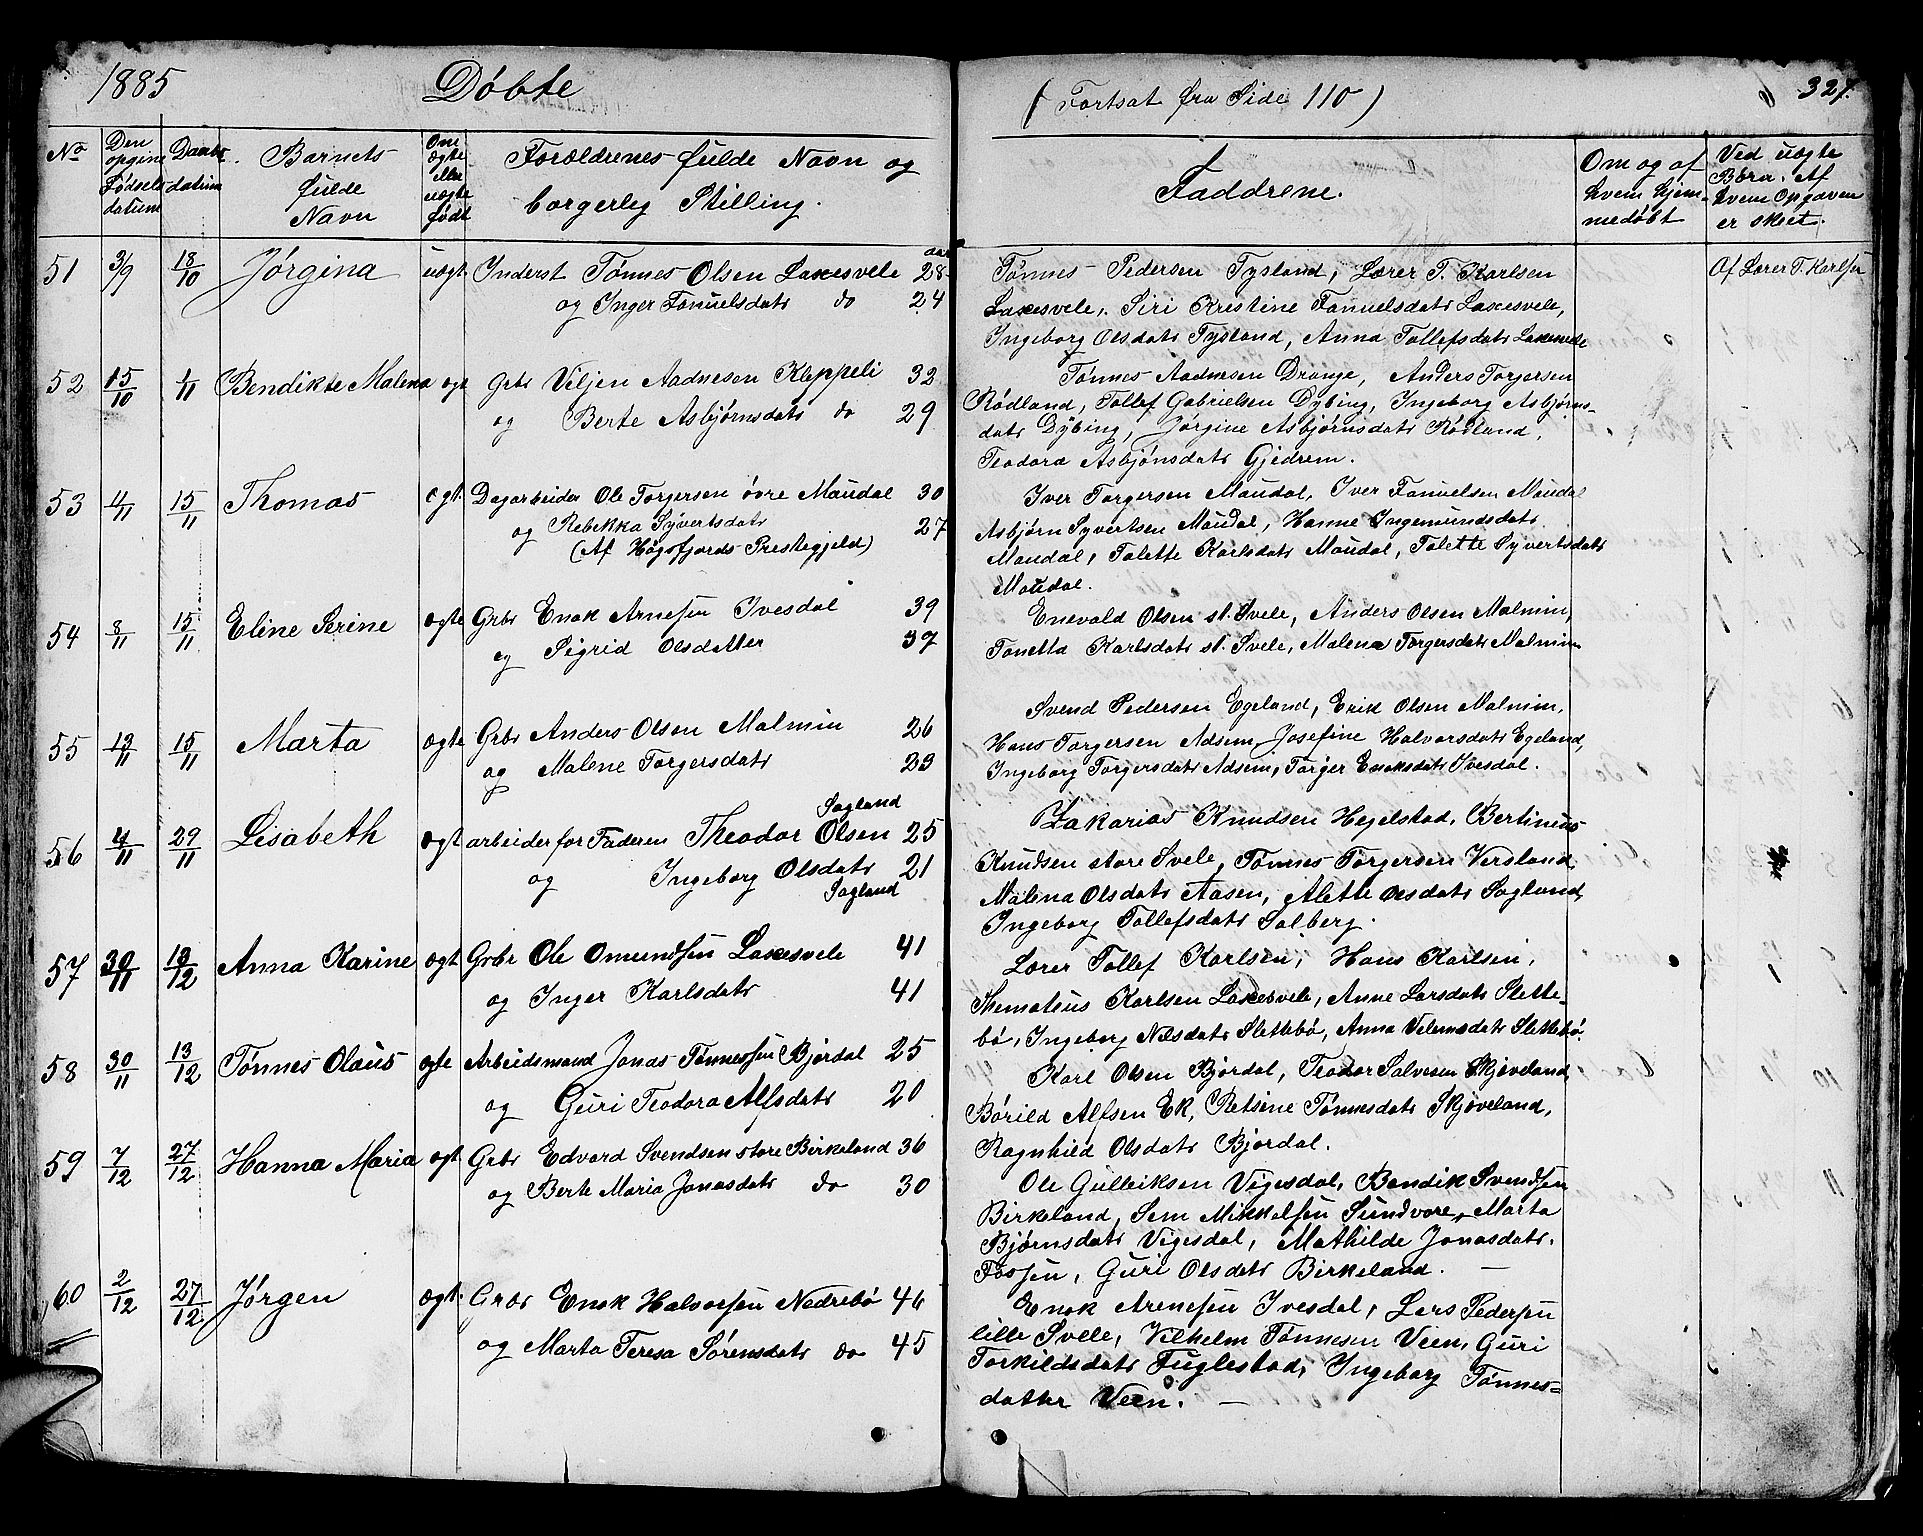 1885 Döbte
( Fortsat fra Side 110 ) 327.
No
Den opgivne Fødsels datum
Daabs datum
Barnets fulde Navn
Om ægte eller uægte født
Forældrenes fulde Navn og borgerlig Stilling.
Faddrene.
Om og af hvem hjemmedøbt
Ved uægte Børn. Af hvem Opgaven er skeet.
51 3/9 18/10 Jörgina uægt Inderst Tønnes Olsen Laxesvele aar 28
og Inger Fanuelsdatr do 24
Tønnes Pedersen Tysland, Lærer T. Karlsen
Laxesvele, Siri Kristine Fanuelsdatr Laxesvele,
Ingeborg Olsdatr Tysland, Anna Tollefsdatr Laxesvele
Af Lærer T. Karlsen
52 15/10 1/11 Bendikte Malena ægt Grbr Viljen Aadnesen Kleppeli 32
og Berte Asbjørnsdatr do 29
Tønnes Aadnesen Drange, Anders Torgersen
Rødland, Tollef Gabrielsen Dybing, Ingeborg Asbjørns-
datr Dybing, Jørgine Asbjørnsdatr Rødland,
Teodora Asbjønsdatr Gjedrem.
53 4/11 15/11 Thomas ægt. Dagarbeider Ole Torgersen övre Maudal 30
og Rebekka Syvertsdatr 27
(Af Høgsfjords Prestegjeld)
Iver Torgersen Maudal, Iver Fanuelsen Maudal
Asbjørn Syvertsen Maudal, Hanne Ingemundsdatr
Maudal, Talette Karlsdatr Maudal, Talette Syvertsdatr
Maudal.
54 8/11 15/11 Eline Serine ægte Grbr Enok Arnesen Ivesdal 39
og Sigrid Olsdatter 37
Enevald Olsen st. Svele, Anders Olsen Malmin,
Tonetta Karlsdatr st. Svele, Malena Torgersdatr Malmin
55 13/11 15/11 Marta ægte Grbr Anders Olsen Malmin 26
og Malene Torgersdatr 23
Svend Pedersen Egeland, Erik Olsen Malmin,
Hans Torgersen Adsem, Josefine Halvorsdatr Egeland,
Ingeborg Torgersdatr Adsem, Torger Enoksdatr Ivesdal.
56 4/11 29/11 Lisabeth ægt arbeider for Faderen Theodor Olsen Sagland 25
og Ingeborg Olsdatr Sagland 21
Zakarias Knudsen Hegelstad, Bertinius
Knudsen store Svele, Tønnes Torgersen Verdland,
Malena Olsdatr Aasen, Alette Olsdatr Sagland,
Ingeborg Tollefsdatr Solberg.
57 30/11 13/12 Anna Karine ægt Grbr Ole Omundsen Laxesvele 41
og Inger Karlsdatr 41
Lærer Tollef Karlsen, Hans Karlsen,
Karlsen Laxesvele, Anne Larsdatr Slette-
bø, Ingeborg Nilsdatr Slettebø, Anna Velemsdatr Slettebø.
58 30/11 13/12 Tønnes Olaus ægte Arbeidsmand Jonas Tønnessen Bjørdal 25
og Guri Teodora Alfsdatr 20
Karl Olsen Bjørdal, Teodor Salvesen Skjøveland,
Børild Alfsen Ek, Retsine Tønnesdatr Skjøveland,
Ragnhild Olsdatr Bjørdal.
59 7/12 27/12 Hanna Maria ægt Grbr Edvard Svendsen store Birkeland 36
og Berte Maria Jonasdatr do 30
Ole Gulleiksen Vigesdal, Bendik Svendsen
Birkeland, Sem Mikkelsen Sundvore, Marta
Bjørnsdatr Vigesdal, Mathilde Jonasdatr.
Fossen, Guri Olsdatr Birkeland. —
60 2/12 27/12 Jørgen ægt. Grbr Enok Halvorsen Nedrebø 46
og Marta Teresa Sørensdatr do 45
Enok Arnesen Ivesdal, Lars Pedersen
lille Svele, Vilhelm Tønnesen Veen, Guri
Torkildsdatr Fuglestad, Ingeborg Tønnes=
datter Veen. —